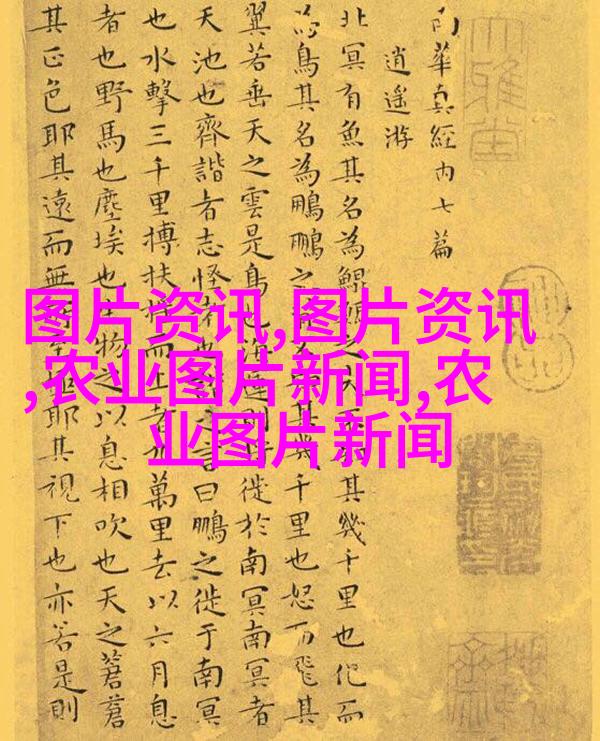 南華真經内七篇
逍遥游
北冥有魚其名為鯤鯤之大其幾千里也化而
為鳥其名為鵬鵬之其幾千里也怒而飛其
翼若垂天之雲是鳥也海運則將徙於南冥南冥者
天池也齊諧者志怪者也諧之言曰鵬之徙于南冥
也水擊三千里搏扶搖而上者九萬里去以六月息
者也野馬也塵埃也生物之以息相吹也天之蒼蒼
其正色耶其遠而無所至極耶其視下也亦若是則
图片资讯,图片资讯
,农业图片新闻,农
业图片新闻